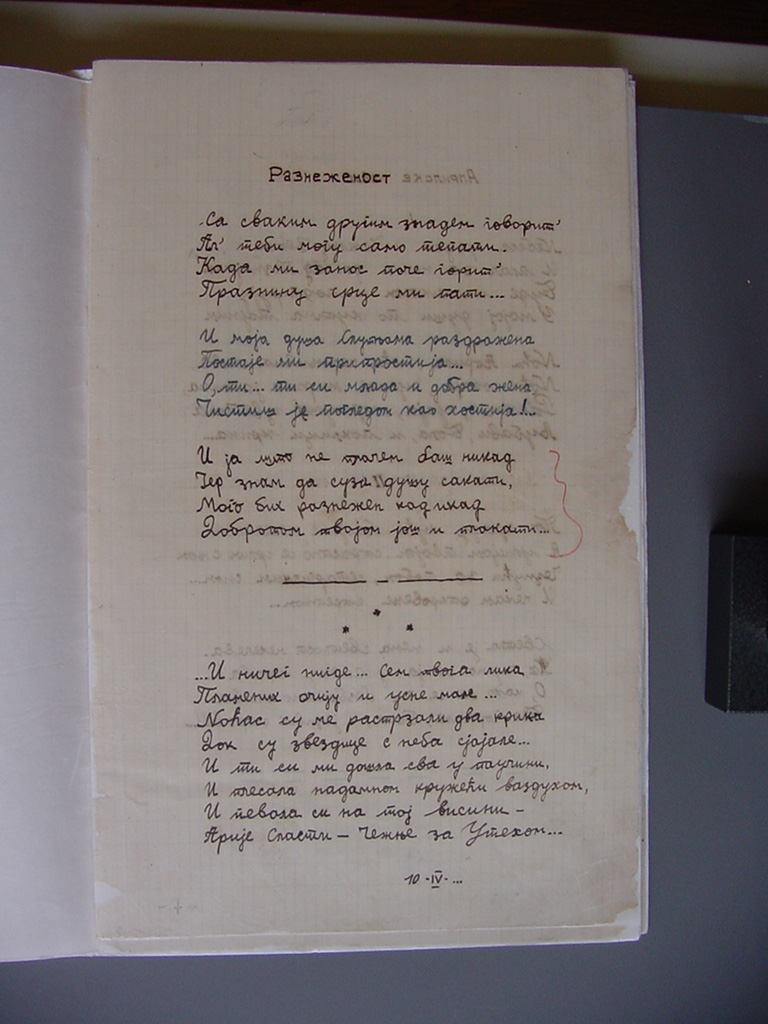 Разнеженост
Са сваким другим знадем говорит'
Ал' теби могу само тепати..
Када ми занос поче горит'
Празнину срце ми пати...
И моја душа Слутњама раздражена
Постаје ми припростија...
О, ти... ти си млада и добра жена
Чистиш је погледом као хостија!..
И ја што не плачем баш никад
Јер знам да суза душу сакати,
Мого бих разнежен кад икад
Добротом твојом још и плакати...
...И ничег нигде... Сем твога лика
Пламених очију и усне мале...
Ноћас су ме растрзали два крика
Док су звездице с неба сјајале...
И ти си ми дошла сва у паучини,
И плесала надамном кружећи ваздухом,
И певала си на тој висини –
Арије Сласти – Чежње за Утехом...
10 -IV- ...